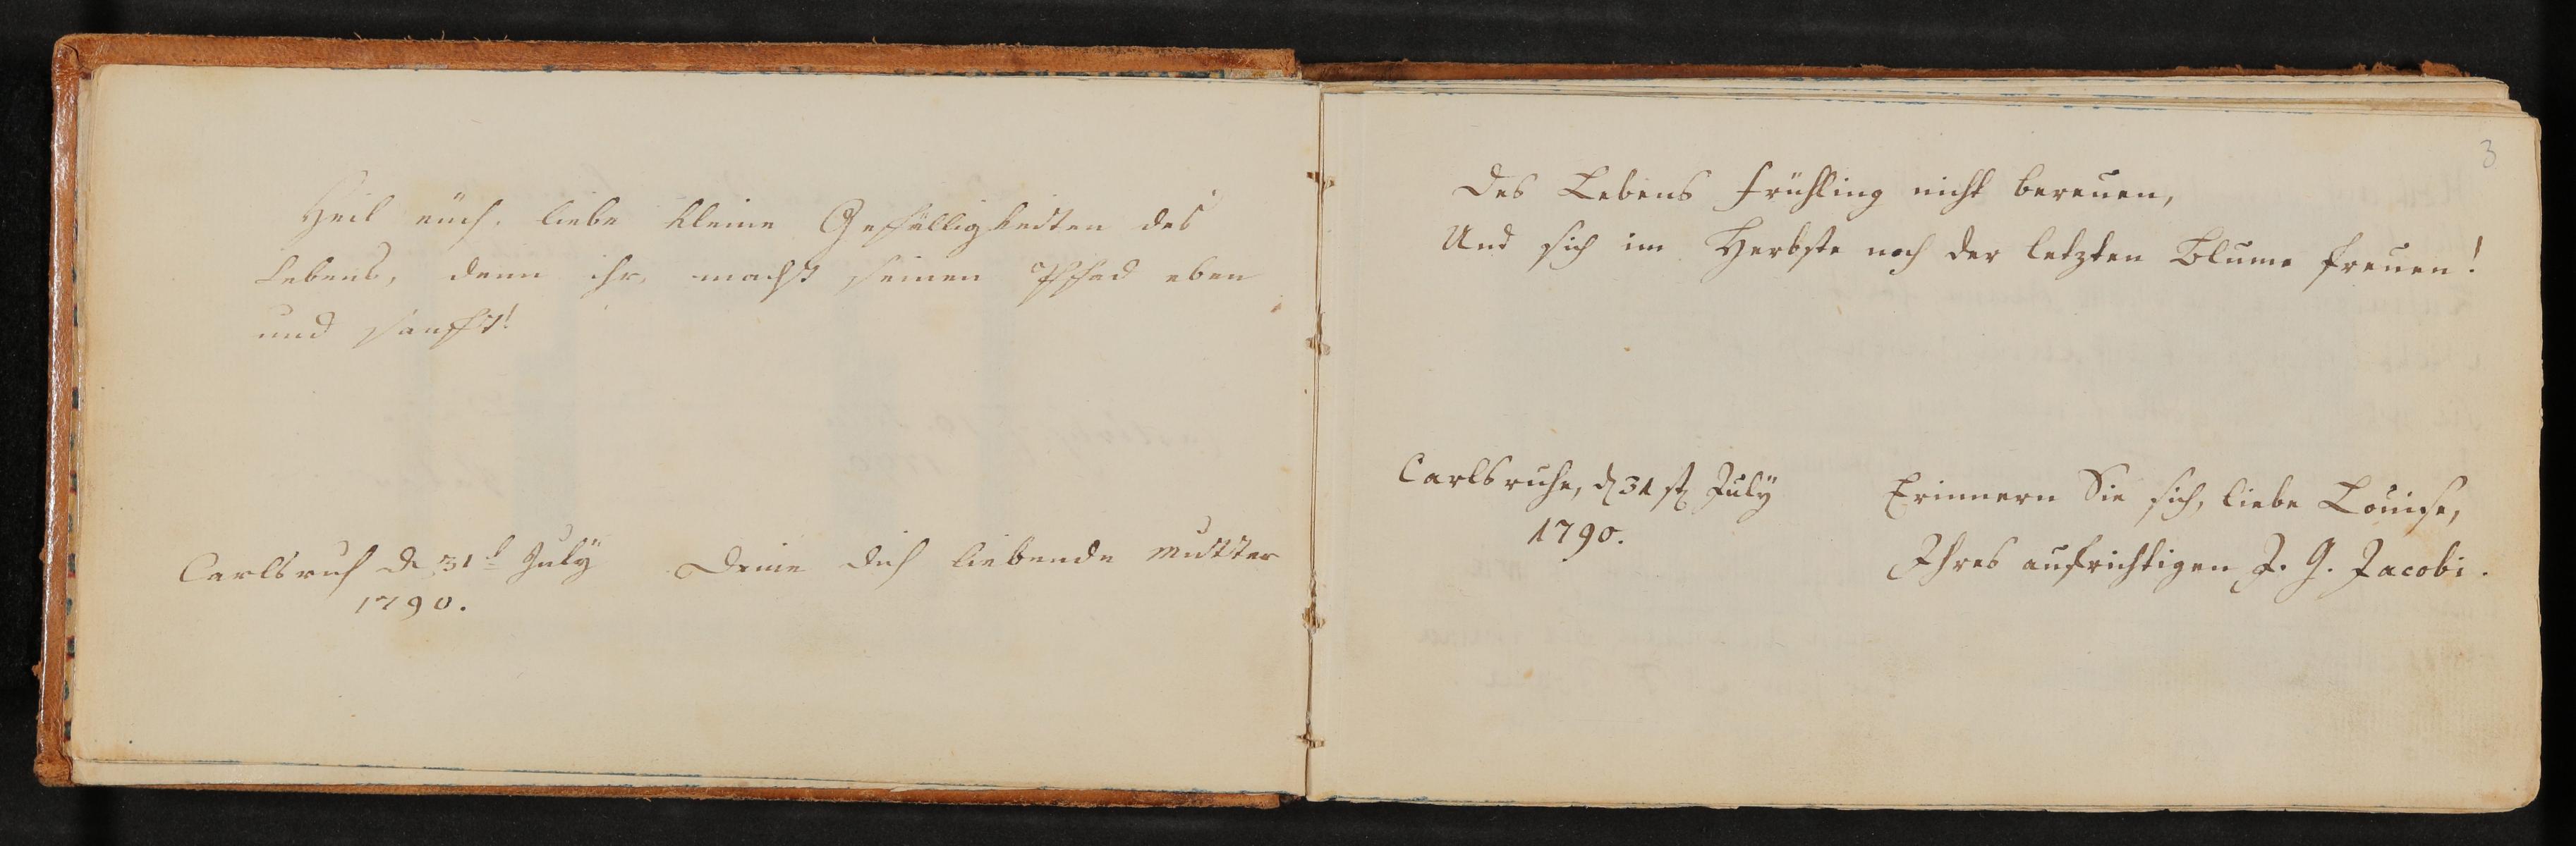 Heil euch, liebe kleine Gefälligkeiten des
Lebens, denn ihr, macht seinen Pfad eben
und sanfft!
Carlsruh d 31t July
1790.
Deine dich liebende Mutter
3
Des Lebens Frühling nicht bereuen,
Und sich im Herbste noch der letzten Blume freuen!
Carlsruhe, d 31 st July
1790.
Erinnern Sie sich, liebe Louise,
Ihres aufrichtigen J. G. Jacobi.